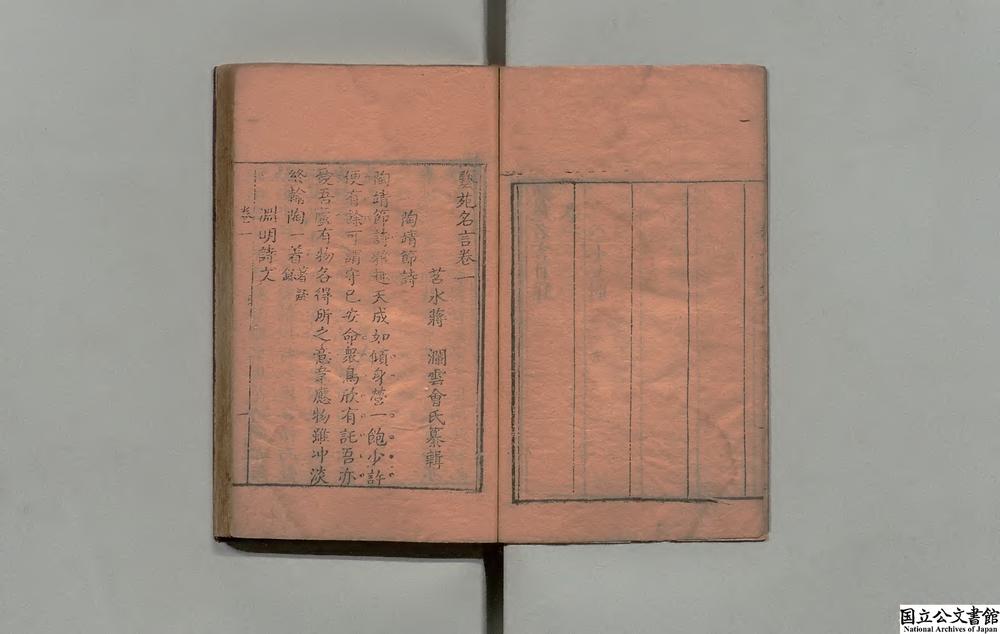 藝苑名言卷一
苕水蔣　瀾雲會氏纂輯
陶靖節詩
陶靖節詩 天成如傾身營一飽少許
便有餘可謂守已安命衆鳥欣有託吾亦
愛吾廬有物各得所之意韋應物雖冲淡
終輸陶一着
淵明詩文
卷一
国立公文書館
National Archives of Japan